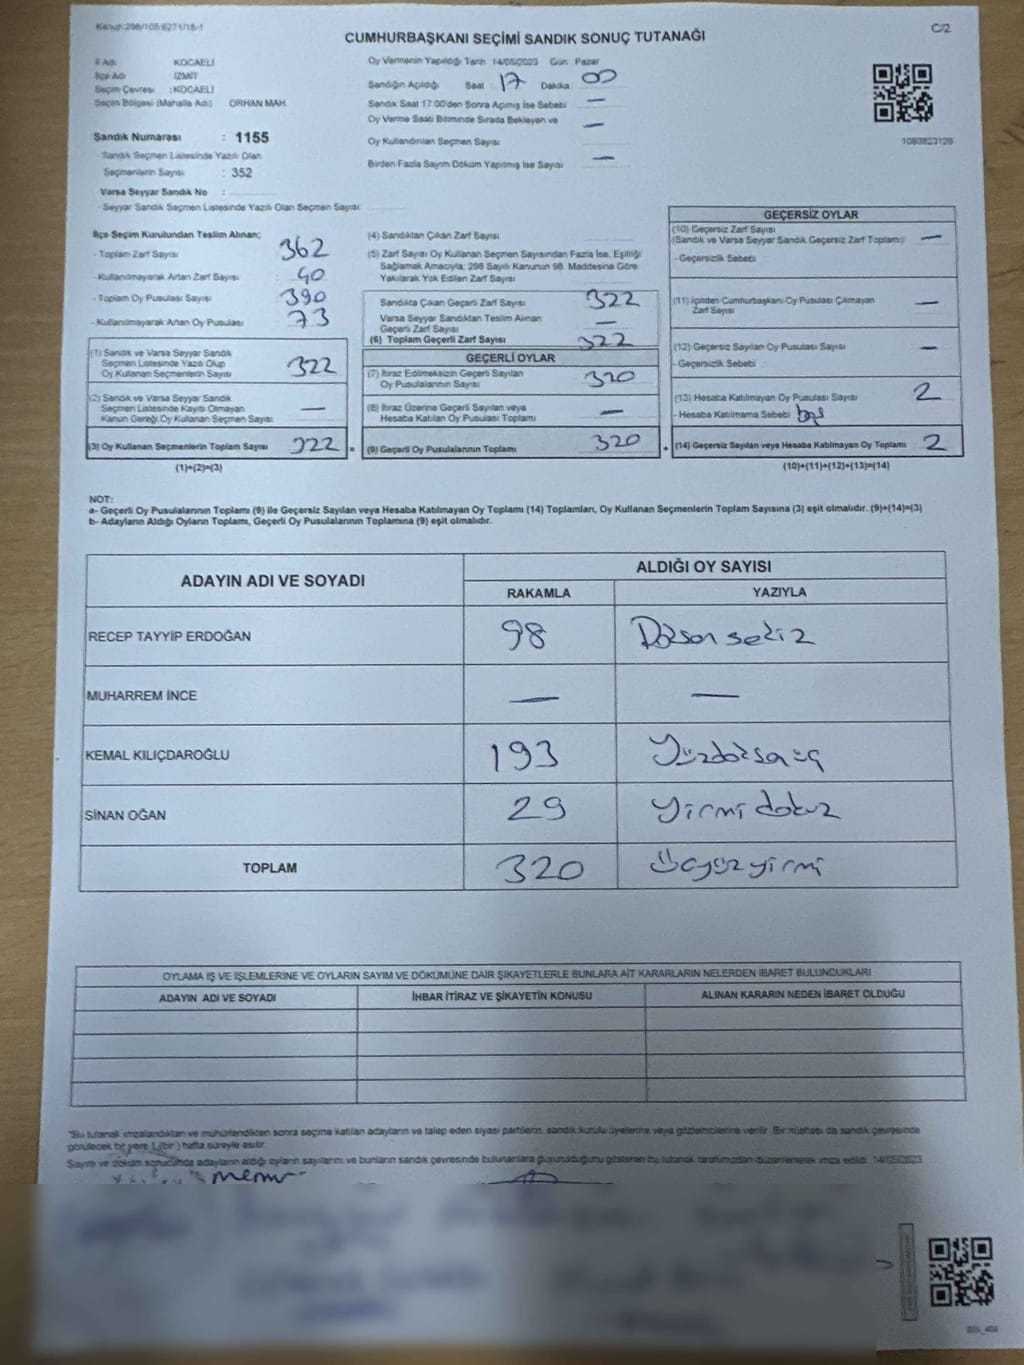 CUMHURBAŞKANI SEÇİMİ SANDIK SONUÇ TUTANAĞI
C/2
İl Adı KOCAELİ
İlçe Adı İZMİT
Seçim Çevresi : KOCAELİ
Seçim Bölgesi (Mahalle Adı) ORHAN MAH.
Sandık Numarası : 1155
- Sandık Seçmen Listesinde Yazılı Olan
Seçmenlerin Sayısı : 352
Varsa Seyyar Sandık No :
- Seyyar Sandık Seçmen Listesinde Yazılı Olan Seçmen Sayısı
Oy Vermenin Yapıldığı Tarih 14/05/2023 Gün Pazar
Sandığın Açıldığı Saat 17 Dakika 00
Sandık Saat 17:00'den Sonra Açılmış İse Sebebi —
Oy Verme Saati Bitiminde Sırada Bekleyen ve
Oy Kullandırılan Seçmen Sayısı —
Birden Fazla Sayım Döküm Yapılmış İse Sayısı —
1093823129
İlçe Seçim Kurulundan Teslim Alınan;
- Toplam Zarf Sayısı : 362
- Kullanılmayarak Artan Zarf Sayısı : 40
- Toplam Oy Pusulası Sayısı : 390
- Kullanılmayarak Artan Oy Pusulası : 73
(1) Sandık ve Varsa Seyyar Sandık
Seçmen Listesinde Yazılı Olup
Oy Kullanan Seçmenlerin Sayısı 322
(2) Sandık ve Varsa Seyyar Sandık
Seçmen Listesinde Kaydı Olmayan
Kanun Gereği Oy Kullanan Seçmen Sayısı —
(3) Oy Kullanan Seçmenlerin Toplam Sayısı 322 =
(1)+(2)=(3)
(4) Sandıktan Çıkan Zarf Sayısı
(5) Zarf Sayısı Oy Kullanan Seçmen Sayısından Fazla İse, Eşitliği
Sağlamak Amacıyla, 298 Sayılı Kanunun 98. Maddesine Göre
Yakılarak Yok Edilen Zarf Sayısı
Sandıkta Çıkan Geçerli Zarf Sayısı 322
Varsa Seyyar Sandıktan Teslim Alınan
Geçerli Zarf Sayısı —
(6) Toplam Geçerli Zarf Sayısı 322
GEÇERLİ OYLAR
(7) İtiraz Edilmeksizin Geçerli Sayılan
Oy Pusulalarının Sayısı 320
(8) İtiraz Üzerine Geçerli Sayılan veya
Hesaba Katılan Oy Pusulası Toplamı —
(9) Geçerli Oy Pusulalarının Toplamı 320 +
GEÇERSİZ OYLAR
(10) Geçersiz Zarf Sayısı
(Sandık ve Varsa Seyyar Sandık Geçersiz Zarf Toplamı) —
- Geçersizlik Sebebi
(11) İçinden Cumhurbaşkanı Oy Pusulası Çıkmayan
Zarf Sayısı —
(12) Geçersiz Sayılan Oy Pusulası Sayısı —
- Geçersizlik Sebebi
(13) Hesaba Katılmayan Oy Pusulası Sayısı 2
- Hesaba Katılmama Sebebi boş
(14) Geçersiz Sayılan veya Hesaba Katılmayan Oy Toplamı 2
(10)+(11)+(12)+(13)=(14)
NOT:
a- Geçerli Oy Pusulalarının Toplamı (9) ile Geçersiz Sayılan veya Hesaba Katılmayan Oy Toplamı (14) Toplamları, Oy Kullanan Seçmenlerin Toplam Sayısına (3) eşit olmalıdır. (9)+(14)=(3)
b- Adayların Aldığı Oyların Toplamı, Geçerli Oy Pusulalarının Toplamına (9) eşit olmalıdır.
ADAYIN ADI VE SOYADI ALDIĞI OY SAYISI
RAKAMLA YAZIYLA
RECEP TAYYİP ERDOĞAN 98 Doksan sekiz
MUHARREM İNCE — —
KEMAL KILIÇDAROĞLU 193 Yüzdoksanüç
SİNAN OĞAN 29 Yirmi dokuz
TOPLAM 320 Üçyüzyirmi
OYLAMA İŞ VE İŞLEMLERİNE VE OYLARIN SAYIM VE DÖKÜMÜNE DAİR ŞİKAYETLERLE BUNLARA AİT KARARLARIN NELERDEN İBARET BULUNDUKLARI
ADAYIN ADI VE SOYADI İHBAR İTİRAZ VE ŞİKAYETİN KONUSU ALINAN KARARIN NEDEN İBARET OLDUĞU
"Bu tutanak imzalandıktan ve mühürlendikten sonra seçime katılan adayların ve talep eden siyasi partilerin, sandık kurulu üyelerine veya gözlemcilerine verilir. Bir nüshası da sandık çevresinde
görülecek bir yere 1 (bir) hafta süreyle asılır.
Sayım ve döküm sonucunda adayların aldığı oyların sayılarını ve bunların sandık çevresinde bulunanlara duyurulduğunu gösteren bu tutanak tarafımızdan düzenlenerek imza edildi. 14/05/2023
memur